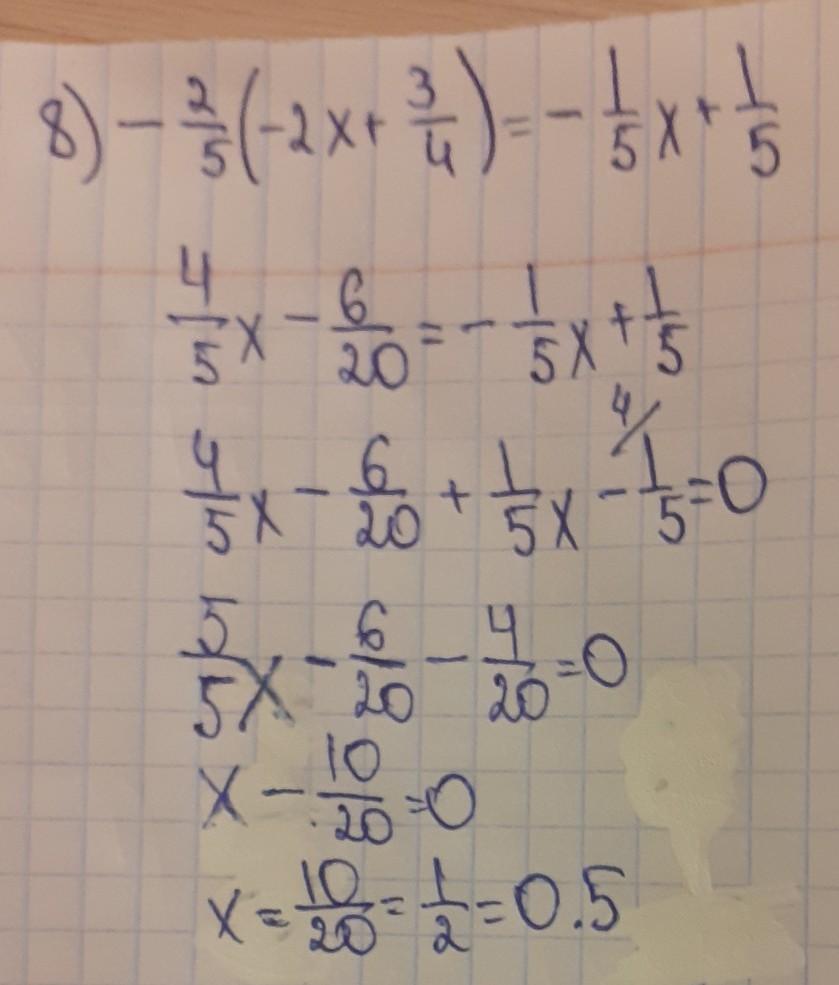 8) - 2/5 (-2x + 3/4) = - 1/5 x + 1/5
4/5 x - 6/20 = - 1/5 x + 1/5
4/5 x - 6/20 + 1/5 x - 4/ 1/5 = 0
5/5 x - 6/20 - 4/20 = 0
x - 10/20 = 0
x = 10/20 = 1/2 = 0.5